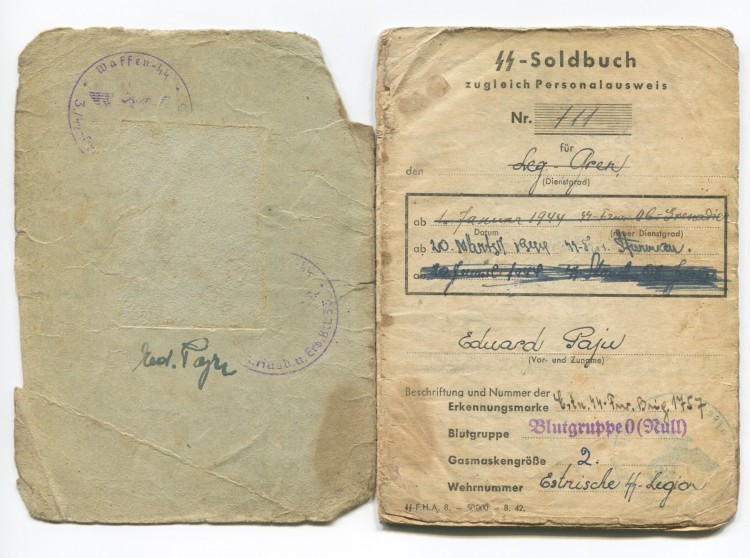 Waffen-SS
Ed. Paju
Ausb. u. Ers. Btl.
SS-Soldbuch
zugleich Personalausweis
Nr. 111
für
den Leg-Gren.
(Dienstgrad)
ab 1. Januar 1944
Datum (neuer Dienstgrad)
ab 20. 1944 Sturmm.
ab
Eduard Paju
(Vor- und Zuname)
Beschriftung und Nummer der
Erkennungsmarke Estn. SS-Frw. Brig. 1757
Blutgruppe Blutgruppe 0 (Null)
Gasmaskengröße 2.
Wehrnummer Estnische SS-Legion
SS-F.H.A. 8. — 50000 — 8. 42.